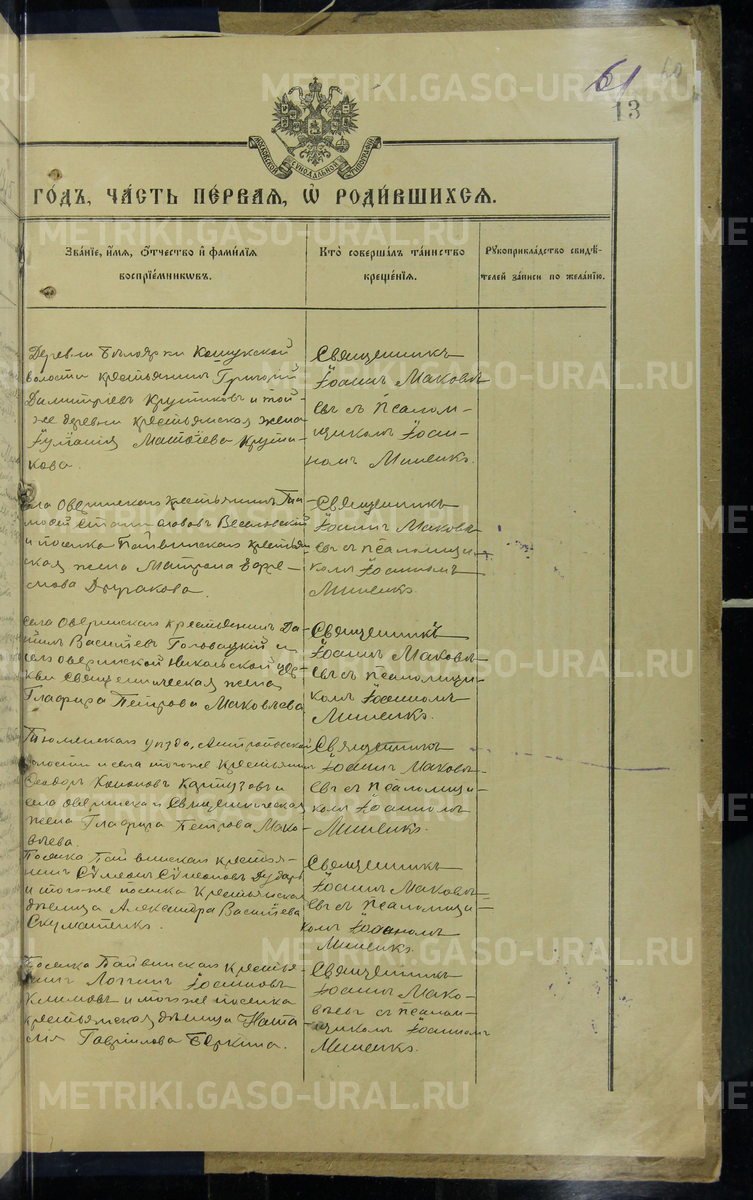 METRIKI.GASO-URAL.RU
61
13
МОСКОВСКОЙ СѴНОДАЛЬНОЙ ТИПОГРАФІИ
ГО́ДЪ, ЧА́СТЬ ПЕ́РВАЯ, Ѡ РОДИ́ВШИХСЯ.
Зва́ніе, и́мя, о́тчество и҆ фами́лія
воспріе́мниковъ.
Кто̀ соверша́лъ та́инство
креще́нія.
Рꙋкоприкла́дство свидѣ́-
телей за́писи по жела́нію.
Деревни Бѣлоярки Кошукской
волости крестьянинъ Григорій
Димитріевъ Крутиковъ и той
же деревни крестьянская жена
Іуліанія Матѳіева Крути-
кова.
Священникъ
Іоаннъ Маковѣ
евъ съ Псалом-
щикомъ Іоан-
номъ Мишенко
села Оверинскаго крестьянинъ Ти-
моѳей Веселовскій
и поселка крестья
ская жена Матрона Ефре-
мова Дыракова.
Священникъ
Іоаннъ Маковѣ
евъ съ псаломщи-
комъ Іоанномъ
Мишенко
села Оверинскаго крестьянинъ Да-
ніилъ Васильевъ Головацкій и
села Оверинской Николаевской цер-
кви священническая жена
Глафира Петрова Маковѣева
Священникъ
Іоаннъ Маковѣ
евъ съ псаломщи-
комъ Іоанномъ
Мишенко.
Тюменскаго уѣзда,
волости и села тогоже крестьянинъ
Ѳеодоръ Кононовъ Картузовъ и
села Оверинскаго Священническая
жена Глафира Петрова Мако-
вѣева.
Священникъ
Іоаннъ Маковѣ
евъ съ псаломщи-
комъ Іоанномъ
Мишенко.
Поселка крестья-
нинъ Сѵмеонъ Сѵмеоновъ Дударь
и тогоже поселка Крестьянская
дѣвица Александра Васильева
Скуматенко.
Священникъ
Іоаннъ Маковѣ
евъ съ псаломщи
комъ Іоанномъ
Мишенко
Поселка крестья-
нинъ Логгинъ Іоанновъ
Климовъ и тогоже поселка
крестьянская дѣвица Ната
лія Гавріилова Беркина.
Священникъ
Іоаннъ Мако-
вѣевъ съ псалом-
щикомъ Іоанномъ
Мишенко